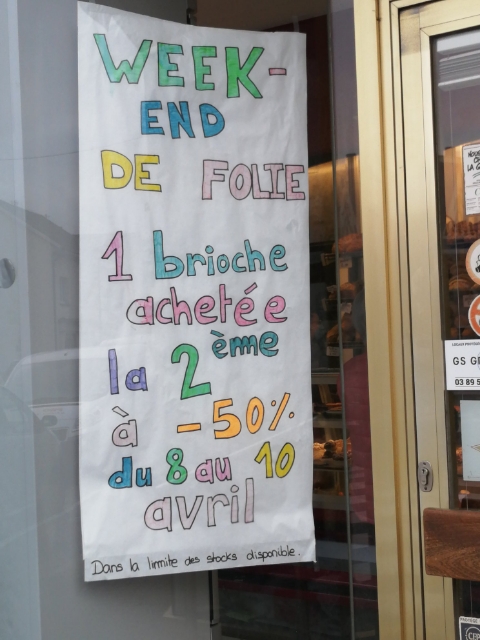 WEEK-
END
DE FOLIE
1 brioche
achetée
la 2ème
à -50%
du 8 au 10
avril
Dans la limite des stocks disponible.
GS
03 89 5